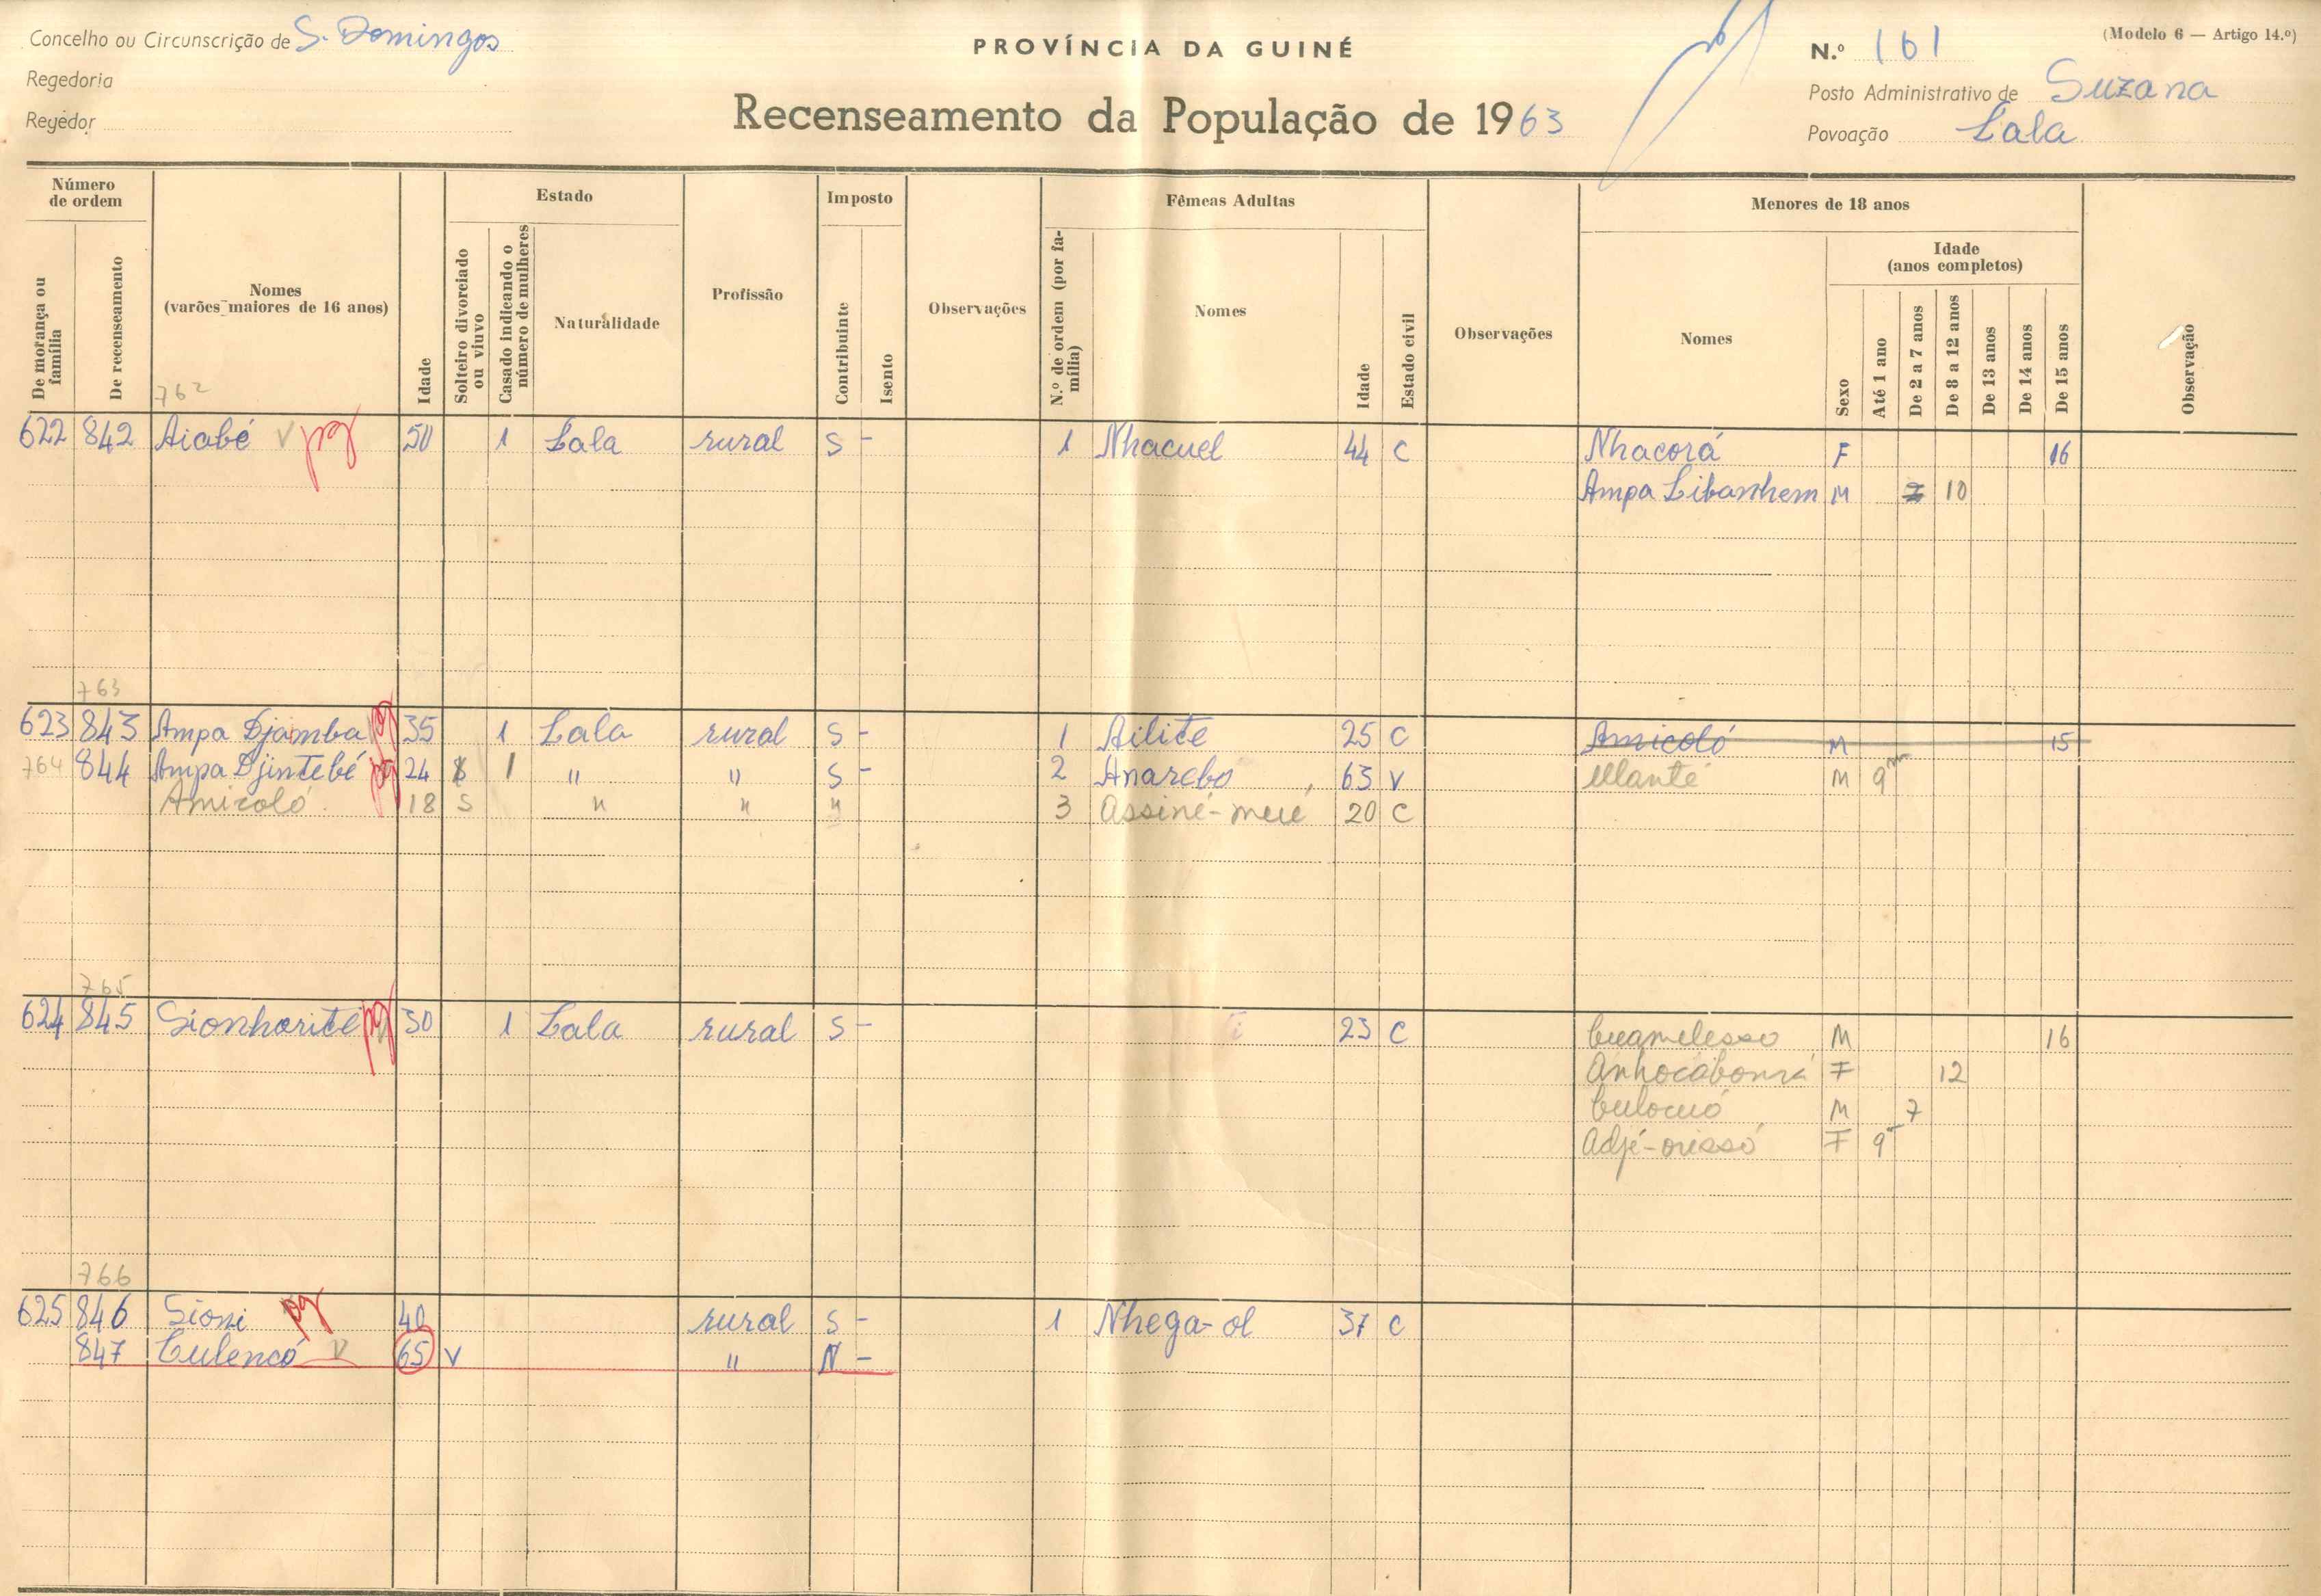 Concelho ou Circunscrição de S. Domingos
Regedoria
Regedor
PROVÍNCIA DA GUINÉ
Recenseamento da População de 1963
(Modelo 6 — Artigo 14.º)
N.º 161
Posto Administrativo de Suzana
Povoação Lala
Número de ordem
De morança ou família
De recenseamento
Nomes
(varões maiores de 16 anos)
762
Idade
Estado
Solteiro divorciado ou viuvo
Casado indicando o número de mulheres
Naturalidade
Profissão
Imposto
Contribuinte
Isento
Observações
Fêmeas Adultas
N.º de ordem (por família)
Nomes
Idade
Estado civil
Observações
Menores de 18 anos
Nomes
Sexo
Idade
(anos completos)
Até 1 ano
De 2 a 7 anos
De 8 a 12 anos
De 13 anos
De 14 anos
De 15 anos
Observação
622 842 Aiabé V pg 50 1 Lala rural S - 1 Nhacuel 44 C Nhacorá F 16
Ampa Libanhem M 7 10
763
623 843 Ampa Djamba pg 35 1 Lala rural S - 1 Ailite 25 C Amicoló M 15
764 844 Ampa Djintebé pg 24 S 1 " " S - 2 Anarebo 63 V M 9m
Amicoló 18 S " " " 3 Assiné-meié 20 C
765
624 845 Sionharité pg 30 1 Lala rural S - 23 C M 16
F 12
M 7
F 9
766
625 846 Sioni pg 40 rural S - 1 Nhega-ol 37 C
847 Culencó V 65 V " N -